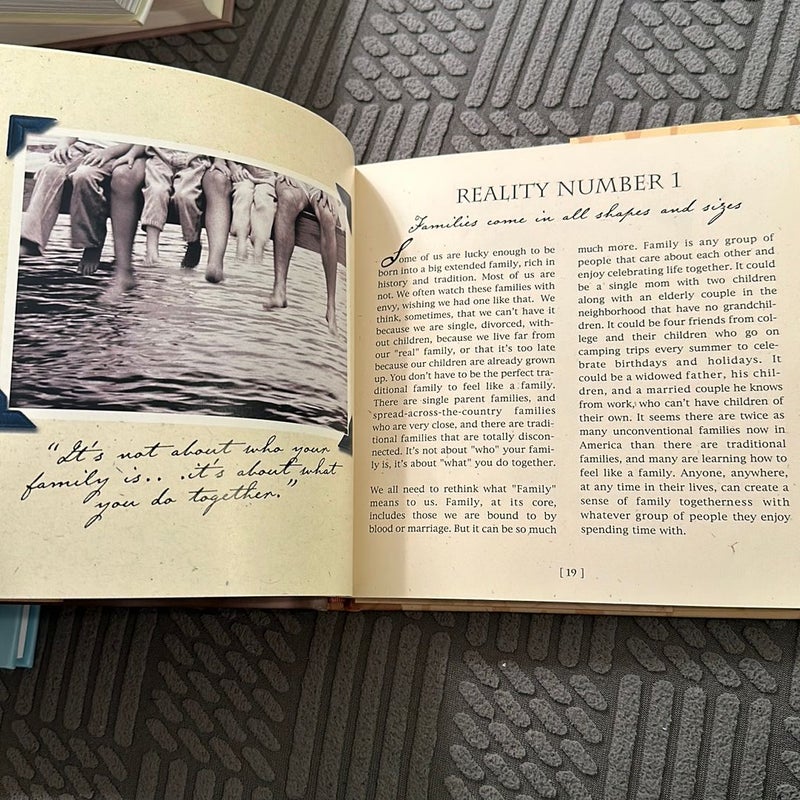 "It's not about who your
family is.. .it's about what
you do together."
REALITY NUMBER 1
Families come in all shapes and sizes
Some of us are lucky enough to be
born into a big extended family, rich in
history and tradition. Most of us are
not. We often watch these families with
envy, wishing we had one like that. We
think, sometimes, that we can't have it
because we are single, divorced, with-
out children, because we live far from
our "real" family, or that it's too late
because our children are already grown
up. You don't have to be the perfect tra-
ditional family to feel like a family.
There are single parent families, and
spread-across-the-country families
who are very close, and there are tradi-
tional families that are totally discon-
nected. It's not about "who" your fami-
ly is, it's about "what" you do together.
We all need to rethink what "Family"
means to us. Family, at its core,
includes those we are bound to by
blood or marriage. But it can be so much
much more. Family is any group of
people that care about each other and
enjoy celebrating life together. It could
be a single mom with two children
along with an elderly couple in the
neighborhood that have no grandchil-
dren. It could be four friends from col-
lege and their children who go on
camping trips every summer to cele-
brate birthdays and holidays. It
could be a widowed father, his chil-
dren, and a married couple he knows
from work, who can't have children of
their own. It seems there are twice as
many unconventional families now in
America than there are traditional
families, and many are learning how to
feel like a family. Anyone, anywhere,
at any time in their lives, can create a
sense of family togetherness with
whatever group of people they enjoy
spending time with.
[ 19 ]